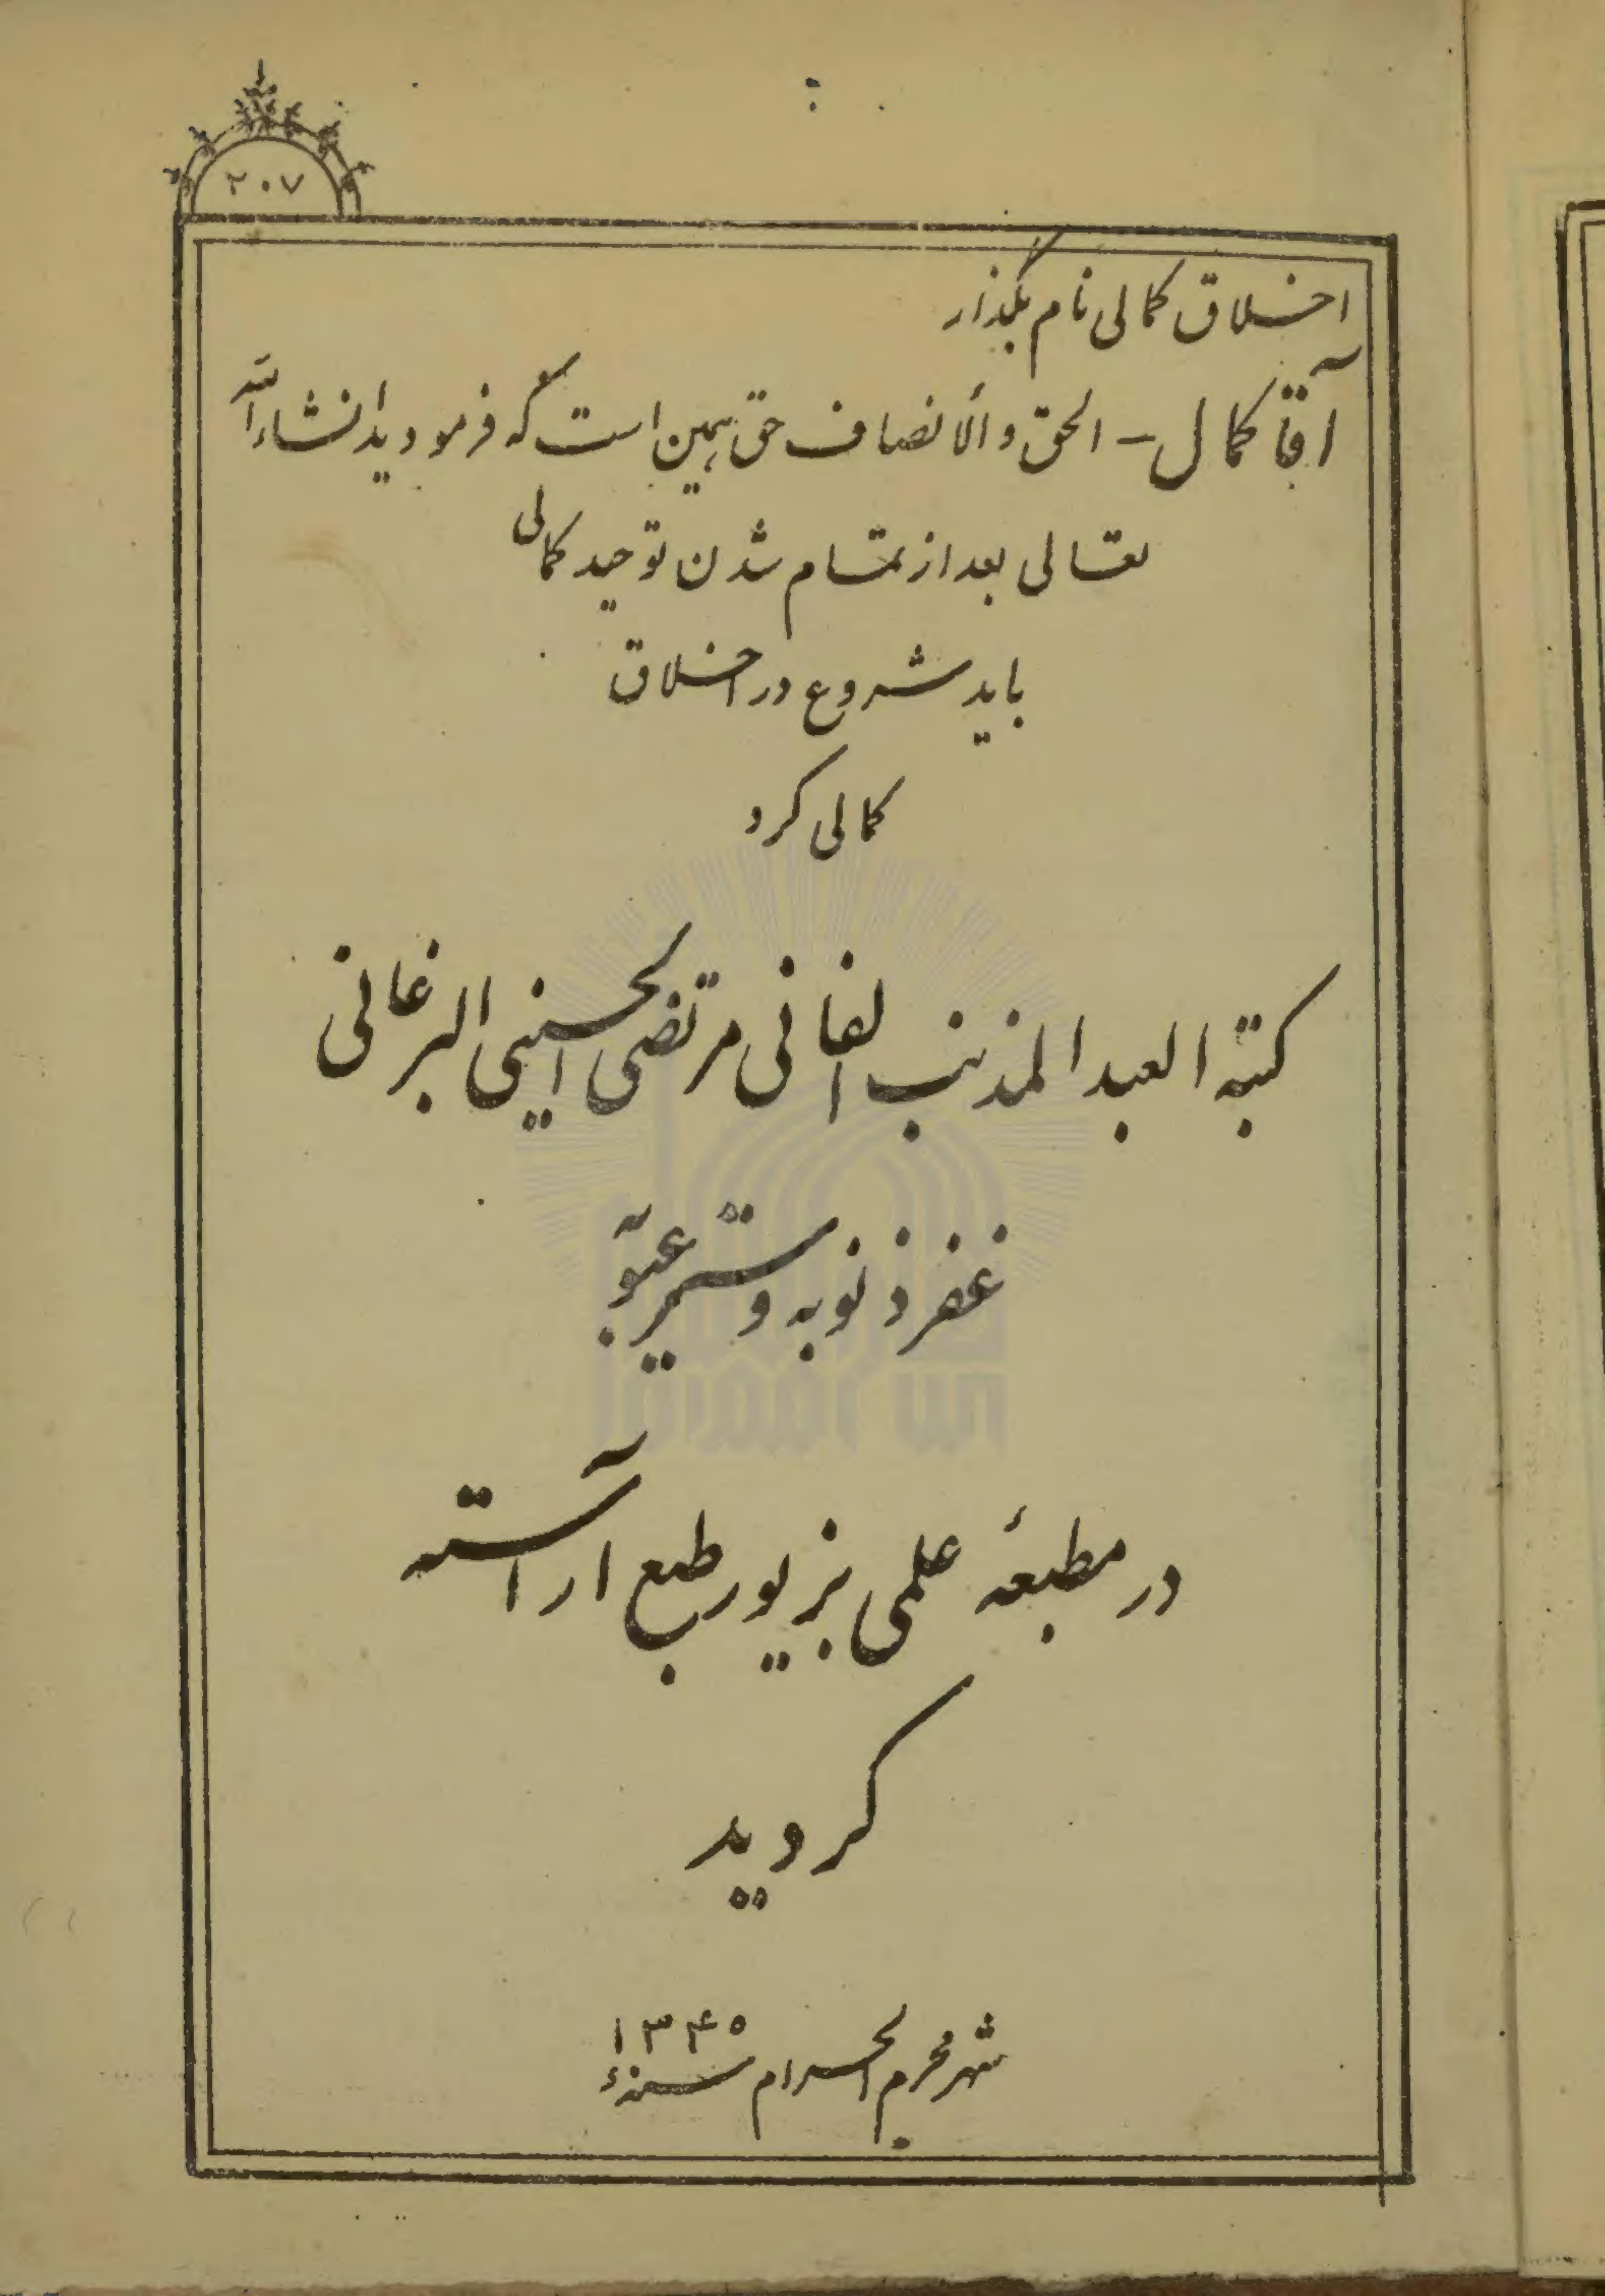 ۲۰۷
اخلاق کمالی نام بگذار
آقا کمال – الحق والأنصاف حق همین است که فرمودید انشاءالله
تعالی بعد از تمام شدن توحید کمالی
باید شروع در اخلاق
کمالی کرد
کتبه العبد المذنب الفانی مرتضی الحسینی البرغانی
غفر ذنوبه و ستر عیوبه
در مطبعهٔ علمی بزیور طبع آراسته
کردید
شهر محرم الحرام سنهٔ ۱۳۴۵